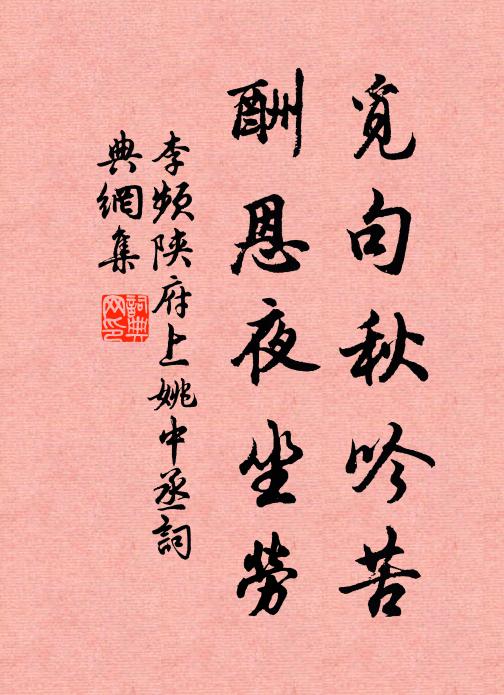 覓句秋吟苦
酬恩夜坐勞
李頻陝府上姚中丞詞
典網集
詞典網印